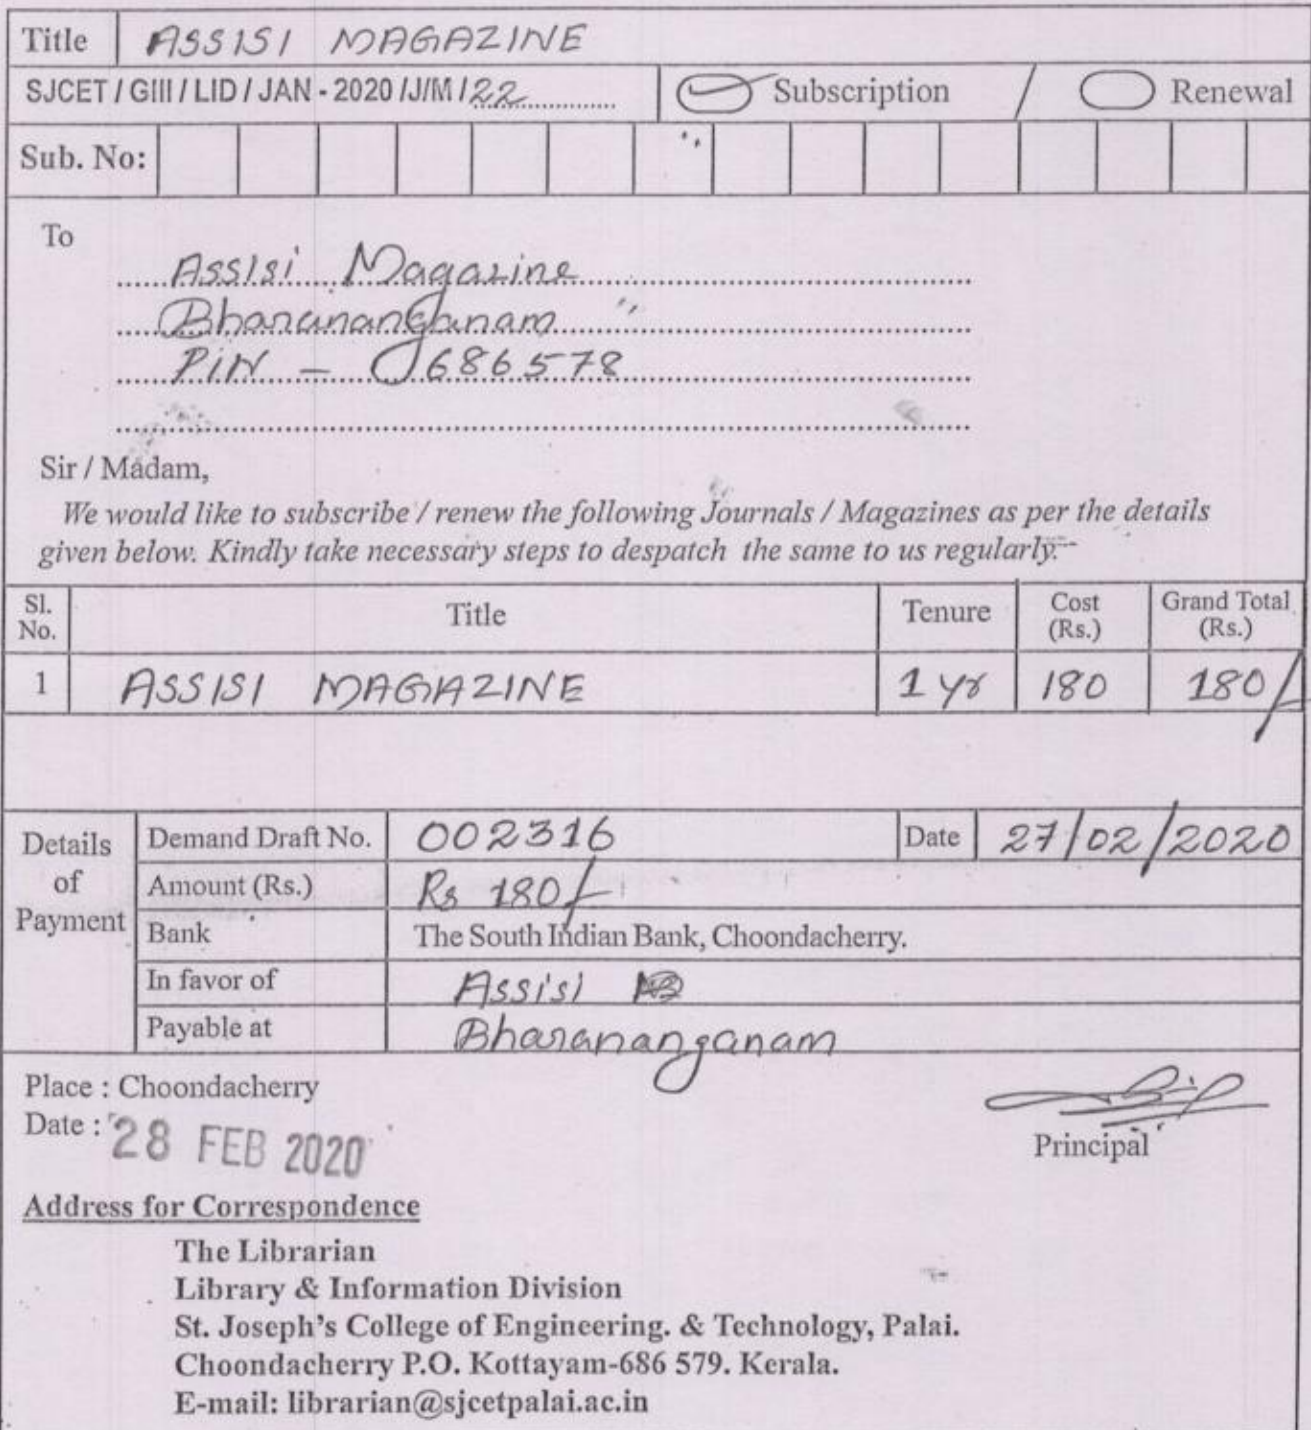 Title ASSISI MAGAZINE
SJCET / GIII / LID / JAN - 2020 /J/M / 22 Subscription / Renewal
Sub. No:
To
Assisi Magazine
Bharananganam
PIN - 686578
Sir / Madam,
We would like to subscribe / renew the following Journals / Magazines as per the details
given below. Kindly take necessary steps to despatch the same to us regularly.
Sl. No. Title Tenure Cost (Rs.) Grand Total (Rs.)
1 ASSISI MAGAZINE 1 yr 180 180/-
Details of Payment
Demand Draft No. 002316 Date 27/02/2020
Amount (Rs.) Rs 180/-
Bank The South Indian Bank, Choondacherry.
In favor of Assisi
Payable at Bharananganam
Place : Choondacherry
Date : 28 FEB 2020
Principal
Address for Correspondence
The Librarian
Library & Information Division
St. Joseph's College of Engineering. & Technology, Palai.
Choondacherry P.O. Kottayam-686 579. Kerala.
E-mail: librarian@sjcetpalai.ac.in